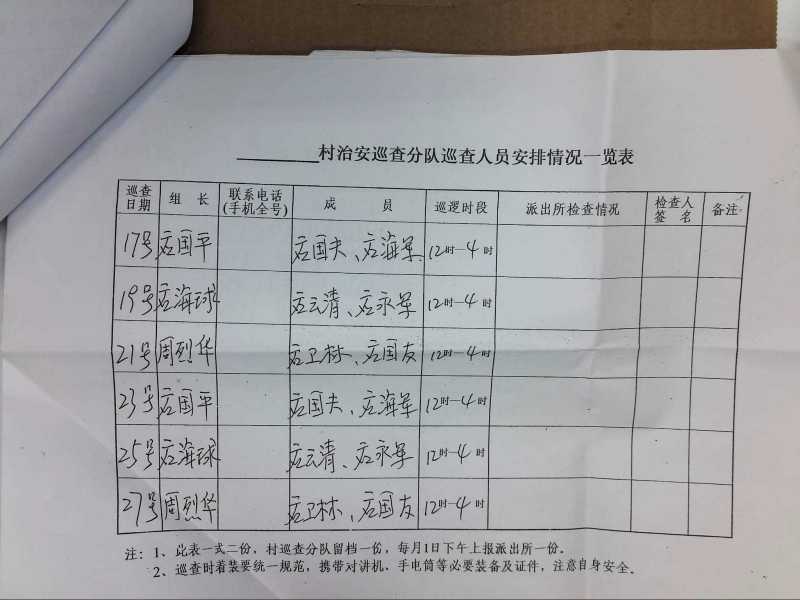 ________村治安巡查分队巡查人员安排情况一览表
巡查日期 组长 联系电话(手机全号) 成员 巡逻时段 派出所检查情况 检查人签名 备注
17号 后国平 后国夫、后海军 12时—4时
19号 后海球 后云清、后永军 12时—4时
21号 周烈华 后卫林、后国友 12时—4时
23号 后国平 后国夫、后海军 12时—4时
25号 后海球 后云清、后永军 12时—4时
27号 周烈华 后卫林、后国友 12时—4时
注：1、此表一式二份，村巡查分队留档一份，每月1日下午上报派出所一份。
2、巡查时着装要统一规范，携带对讲机，手电筒等必要装备及证件，注意自身安全。